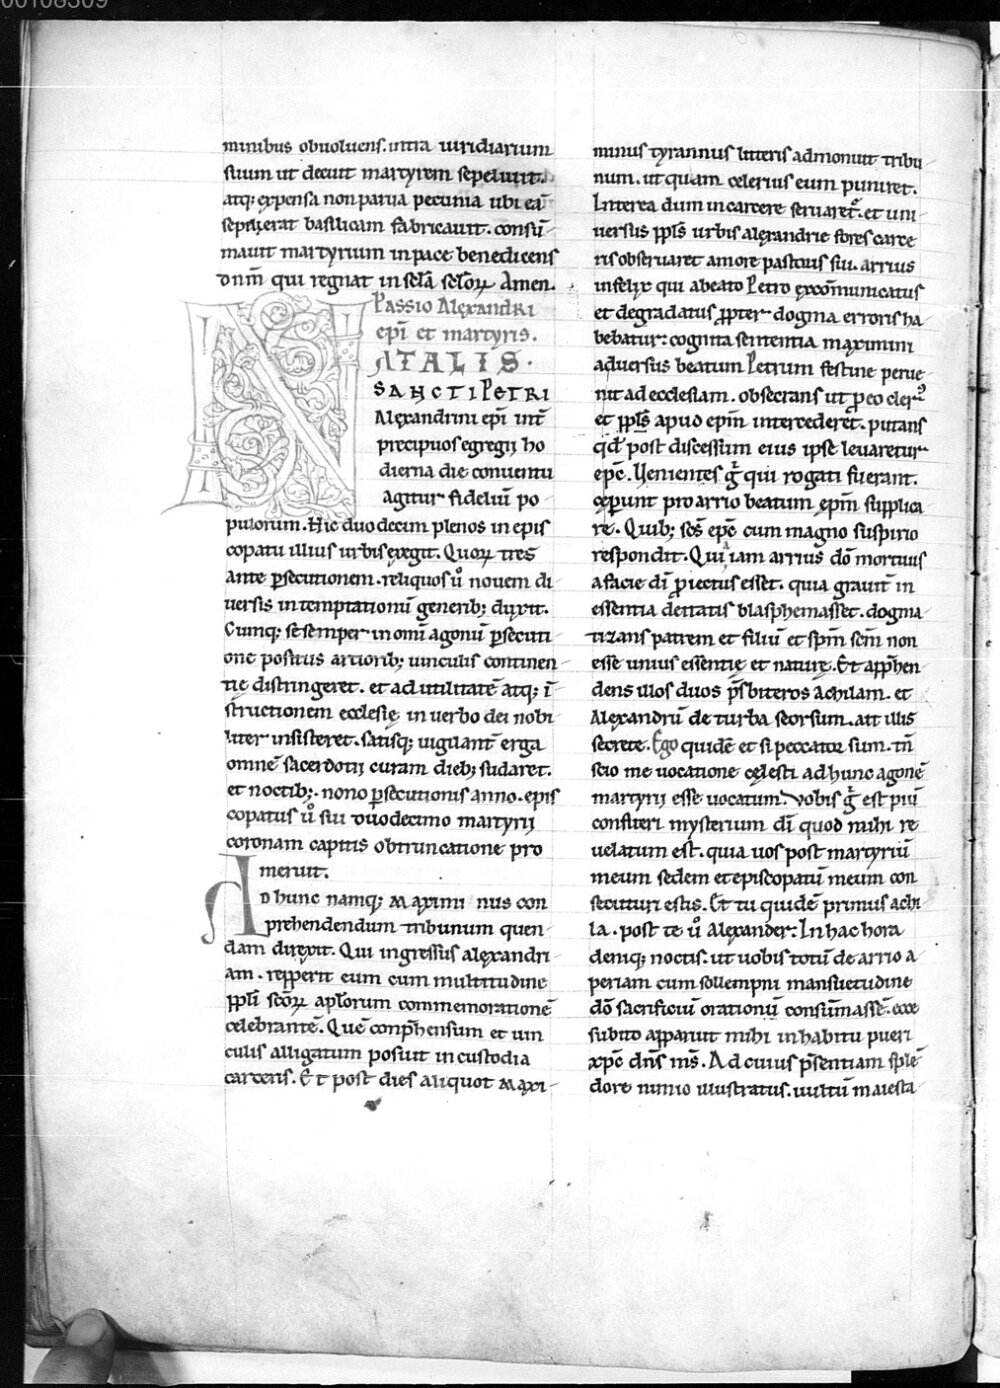 00108309
minibus obuoluens. intra uiridiarium
suum ut decuit martyrem sepeliuit.
atq; expensa non parua pecunia ubi eā
sepelierat basilicam fabricauit. consū-
mauit martyrium in pace benedicens
dnm̄ qui regnat in scl̄a scl̄oꝝ Amen.
Passio Alexandri
ep̄i et martyris.
NATALIS.
SANCTI PETRI
Alexandrini ep̄i int̄
precipuos egregij ho
dierna die conuentu
agitur fideliū po
pulorum. Hic duodecim plenos in epis
copatu illius urbis exegit. Quoꝝ tres
ante ꝑsecutionem. reliquos ů nouem di
uersis in temptationū generib; duxit.
Cumq; se semper in om̄i agonū ꝑsecuti
one positus artiorib; uinculis continen-
tię distringeret. et ad utilitatē atq; ī-
structionem ecclesię in uerbo dei nobi
liter insisteret. satisq; uigilant̄ erga
omnē sacerdotij curam dieb; sudaret.
et noctib;. nono ꝑsecutionis anno. epis
copatus ů sui duodecimo martyrij
coronam capitis obtruncatione pro
meruit.
Ad hunc namq; Maximi nus con
prehendendum tribunum quen-
dam direxit. Qui ingressus alexandri-
am. repperit eum cum multitudine
ppl̄i sc̄oꝝ apl̄orum commemorationē
celebrantē. Quē comp̄hensum et uin
culis alligatum posuit in custodia
carceris. Et post dies aliquot Maxi-
minus tyrannus litteris admonuit tribu-
num. ut quam celerius eum puniret.
Interea dum in carcere seruaret᷑. et uni-
uersus ppl̄s urbis alexandrie fores carce
ris obseruaret amore pastoris sui. arrius
infelix qui a beato Petro excōmunicatus
et degradatus ꝓpter dogma erroris ha-
bebatur: cognita sententia maximini
aduersus beatum Petrum festine perue-
nit ad ecclesiam. obsecrans ut ꝓ eo clerꝰ
et ppl̄s apud ep̄m intercederet. putans
qd̄ post discessum eius ipse leuaretur
ep̄c. Uenientes g̃ qui rogati fuerant.
cęperunt pro arrio beatum ęp̄m supplica
re. Quib; sc̄s ep̄c cum magno suspirio
respondit. Quia iam arrius dō mortuus
a facie dī ꝓiectus esset. quia grauit̄ in
essentia deitatis blasphemasset. dogma-
tizans patrem et filiū et sp̄m sc̄m non
esse unius essentię et naturę. Et app̄hen-
dens illos duos p̄sbiteros achilam. et
Alexandrū de turba seorsum. ait illis
secrete. Ego quidē et si peccator sum. tn̄
scio me uocatione cęlesti ad hunc agonē
martyrij esse uocatum. Vobis g̃ est piū
confiteri mysterium dī quod mihi re
uelatum est. quia uos post martyriū
meum sedem et episcopatū meum con
secuturi estis. Et tu quidē primus achi-
la. post te ů Alexander. In hac hora
deniq; noctis. ut uobis totū de arrio a
periam cum sollempni mansuetudine
dō sacrificiū orationū consūmassē. ecce
subito apparuit mihi in habitu pueri
xp̄c dn̄s m̄s. Ad cuius p̄sentiam splē-
dore nimio illustratus. uultū maiesta-